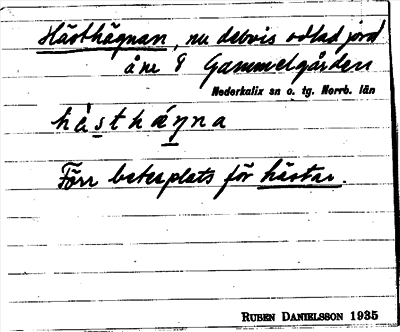 Hästhägnan, nu delvis odlad jord
å nr 8 Gammelgården
Nederkalix sn o. tg. Norrb. län
hä̀sthá̈ŋna
Förr betesplats för hästar.
RUBEN DANIELSSON 1935